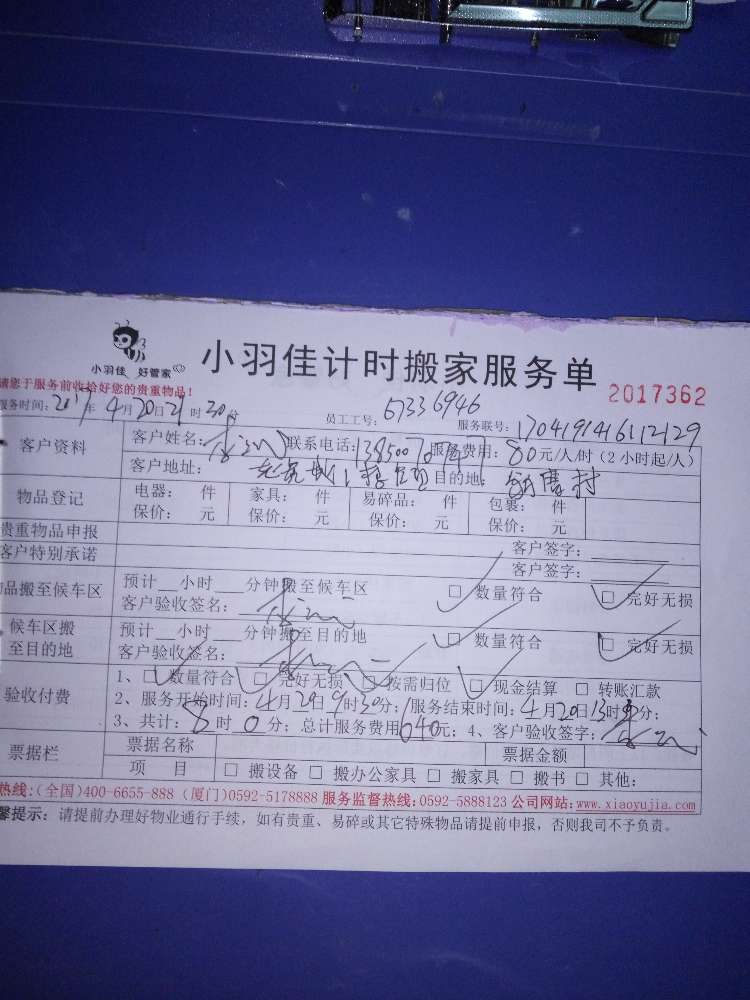 小羽佳 好管家
小羽佳计时搬家服务单 2017362
请您于服务前收拾好您的贵重物品!
服务时间:2017年4月20日21时30分 员工工号:67336946 服务联号:1704191416112129
客户资料 客户姓名: 联系电话: 服务费用:80元/人/时(2小时起/人)
客户地址: 目的地:
物品登记 电器: 件 家具: 件 易碎品: 件 包裹: 件
保价: 元 保价: 元 保价: 元 保价: 元
贵重物品申报 客户签字:
客户特别承诺 客户签字:
物品搬至候车区 预计__小时___分钟搬至候车区 □ 数量符合 □ 完好无损
客户验收签名:
候车区搬至目的地 预计__小时___分钟搬至目的地 □ 数量符合 □ 完好无损
客户验收签名:
验收付费 1、□ 数量符合 □ 完好无损 □ 按需归位 □ 现金结算 □ 转账汇款
2、服务开始时间:4月20日9时30分;服务结束时间:4月20日13时 分;
3、共计:8时0分;总计服务费用640元;4、客户验收签字:
票据栏 票据名称 票据金额
项 目 □ 搬设备 □ 搬办公家具 □ 搬家具 □ 搬书 □ 其他:
热线:(全国)400-6655-888 (厦门)0592-5178888 服务监督热线:0592-5888123 公司网站:www.xiaoyujia.com
馨提示:请提前办理好物业通行手续,如有贵重、易碎或其它特殊物品请提前申报,否则我司不予负责。